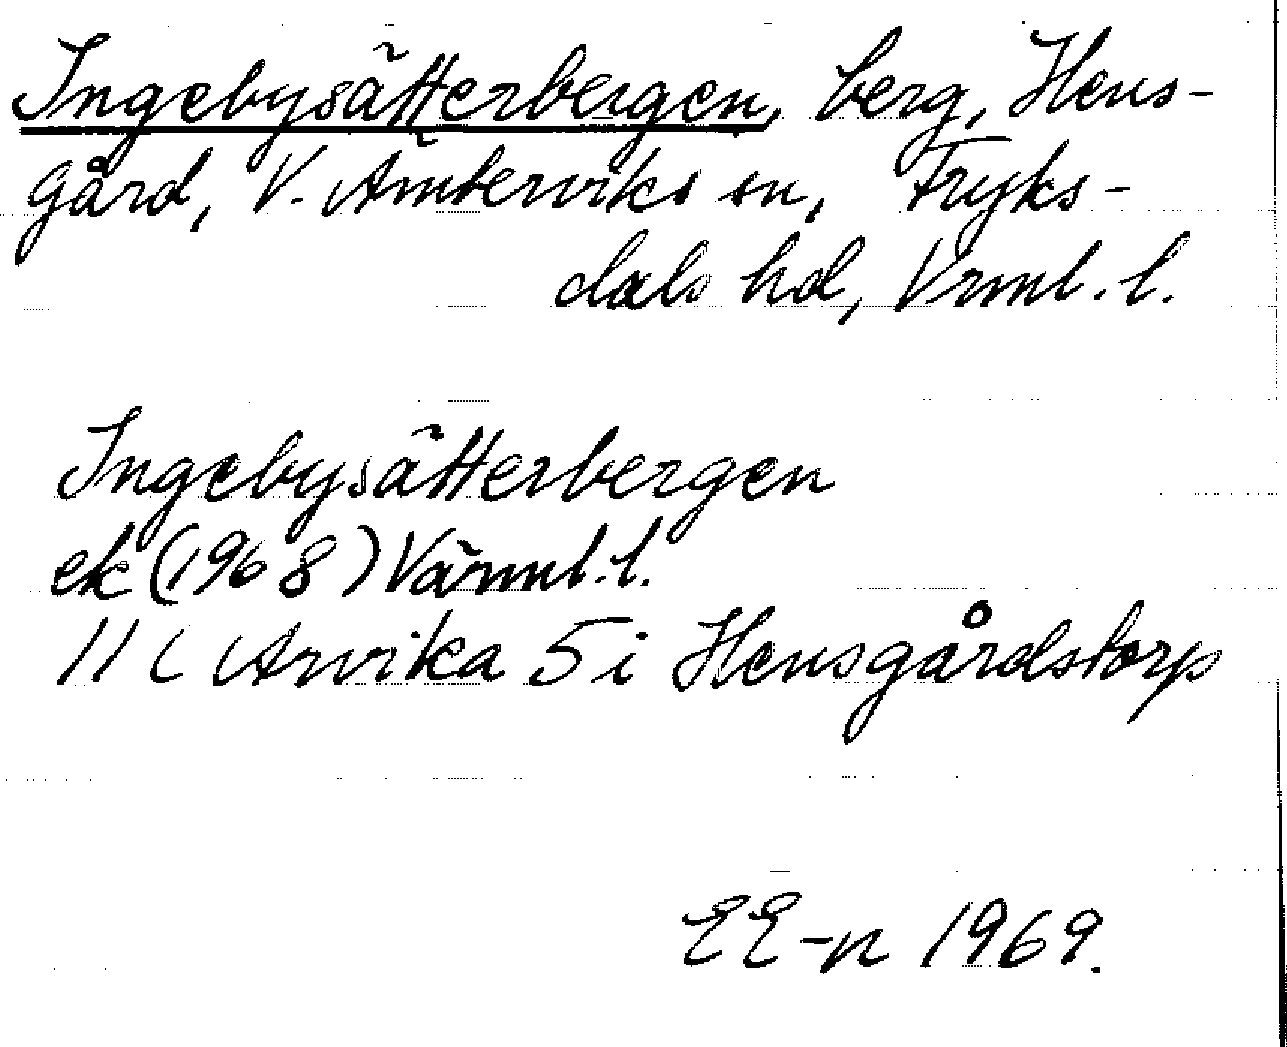 Ingebysätterbergen, berg, Hens-
gård, V. Ämterviks sn, Fryks-
dals hd, Vrml. l.
Ingebysätterbergen
ek (1968) Värml. l.
11 C Arvika 5 i Hensgårdstorp
EE-n 1969.